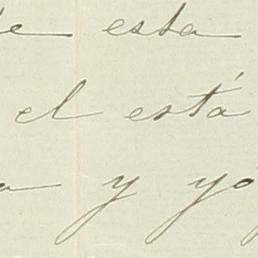 esta
el está
y yo